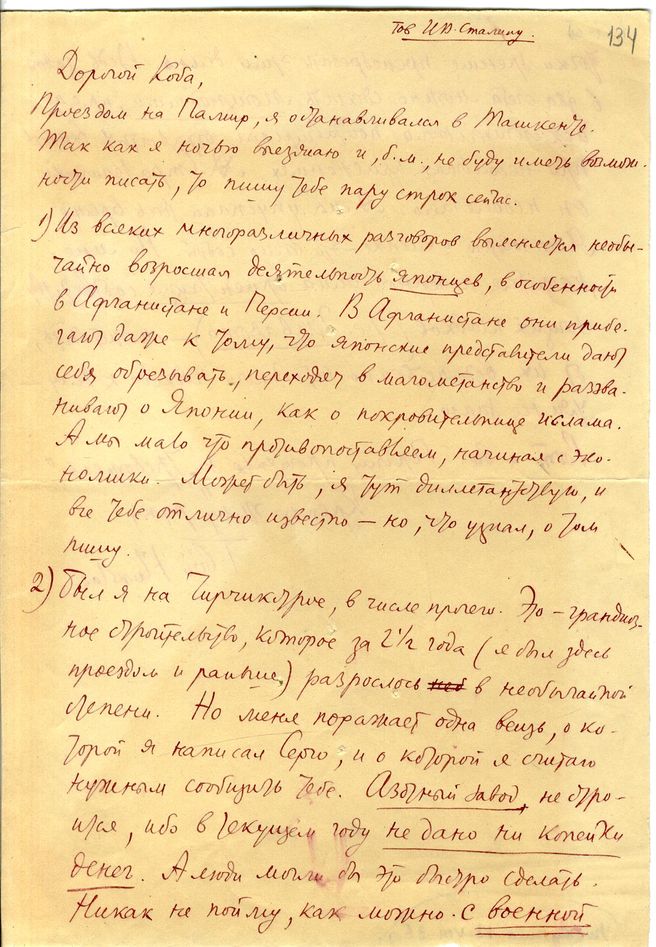 Тов И.В. Сталину.
134
Дорогой Коба,
Проездом на Памир, я останавливался в Ташкенте.
Так как я ночью выезжаю и, б.м., не буду иметь возмож-
ности писать, то пишу тебе пару строк сейчас.
1) Из всяких многоразличных разговоров выясняется необы-
чайно возросшая деятельность японцев, в особенности
в Афганистане и Персии. В Афганистане они прибе-
гают даже к тому, что японские представители дают
себя обрезывать, переходят в магометанство и раззва-
нивают о Японии, как о покровительнице ислама.
А мы мало что противопоставляем, начиная с эко-
номики. Может быть, я тут диллетантствую, и
все тебе отлично известно – но, что узнал, о том
пишу.
2) Был я на Чирчикстрое, в числе прочего. Это – грандиоз-
ное строительство, которое за 2½ года (я был здесь
проездом и раньше) разрослось в необычайной
степени. Но меня поражает одна вещь, о ко-
торой я написал Серго, и о которой я считаю
нужным сообщить тебе. Азотный завод не стро-
ится, ибо в текущем году не дано ни копейки
денег. А люди могли бы это быстро сделать.
Никак не пойму, как можно с военной